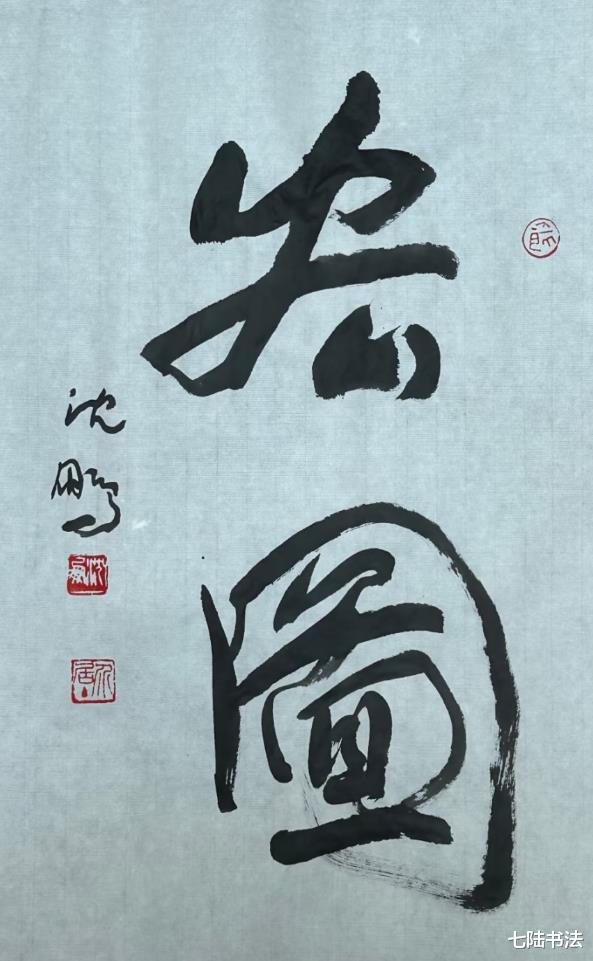 宏圖
沈鵬
七陆书法